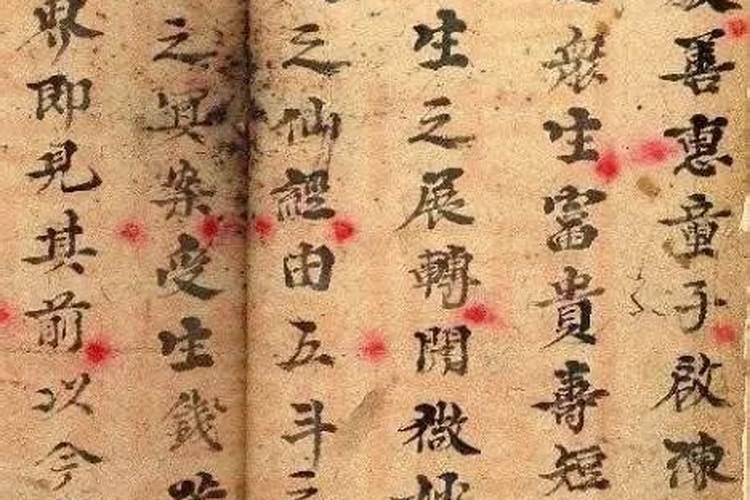 善惠童子啟陳
般生富貴壽短
生之展轉開微
之仙經由五斗之
之冥案受生錢
即見其前以今